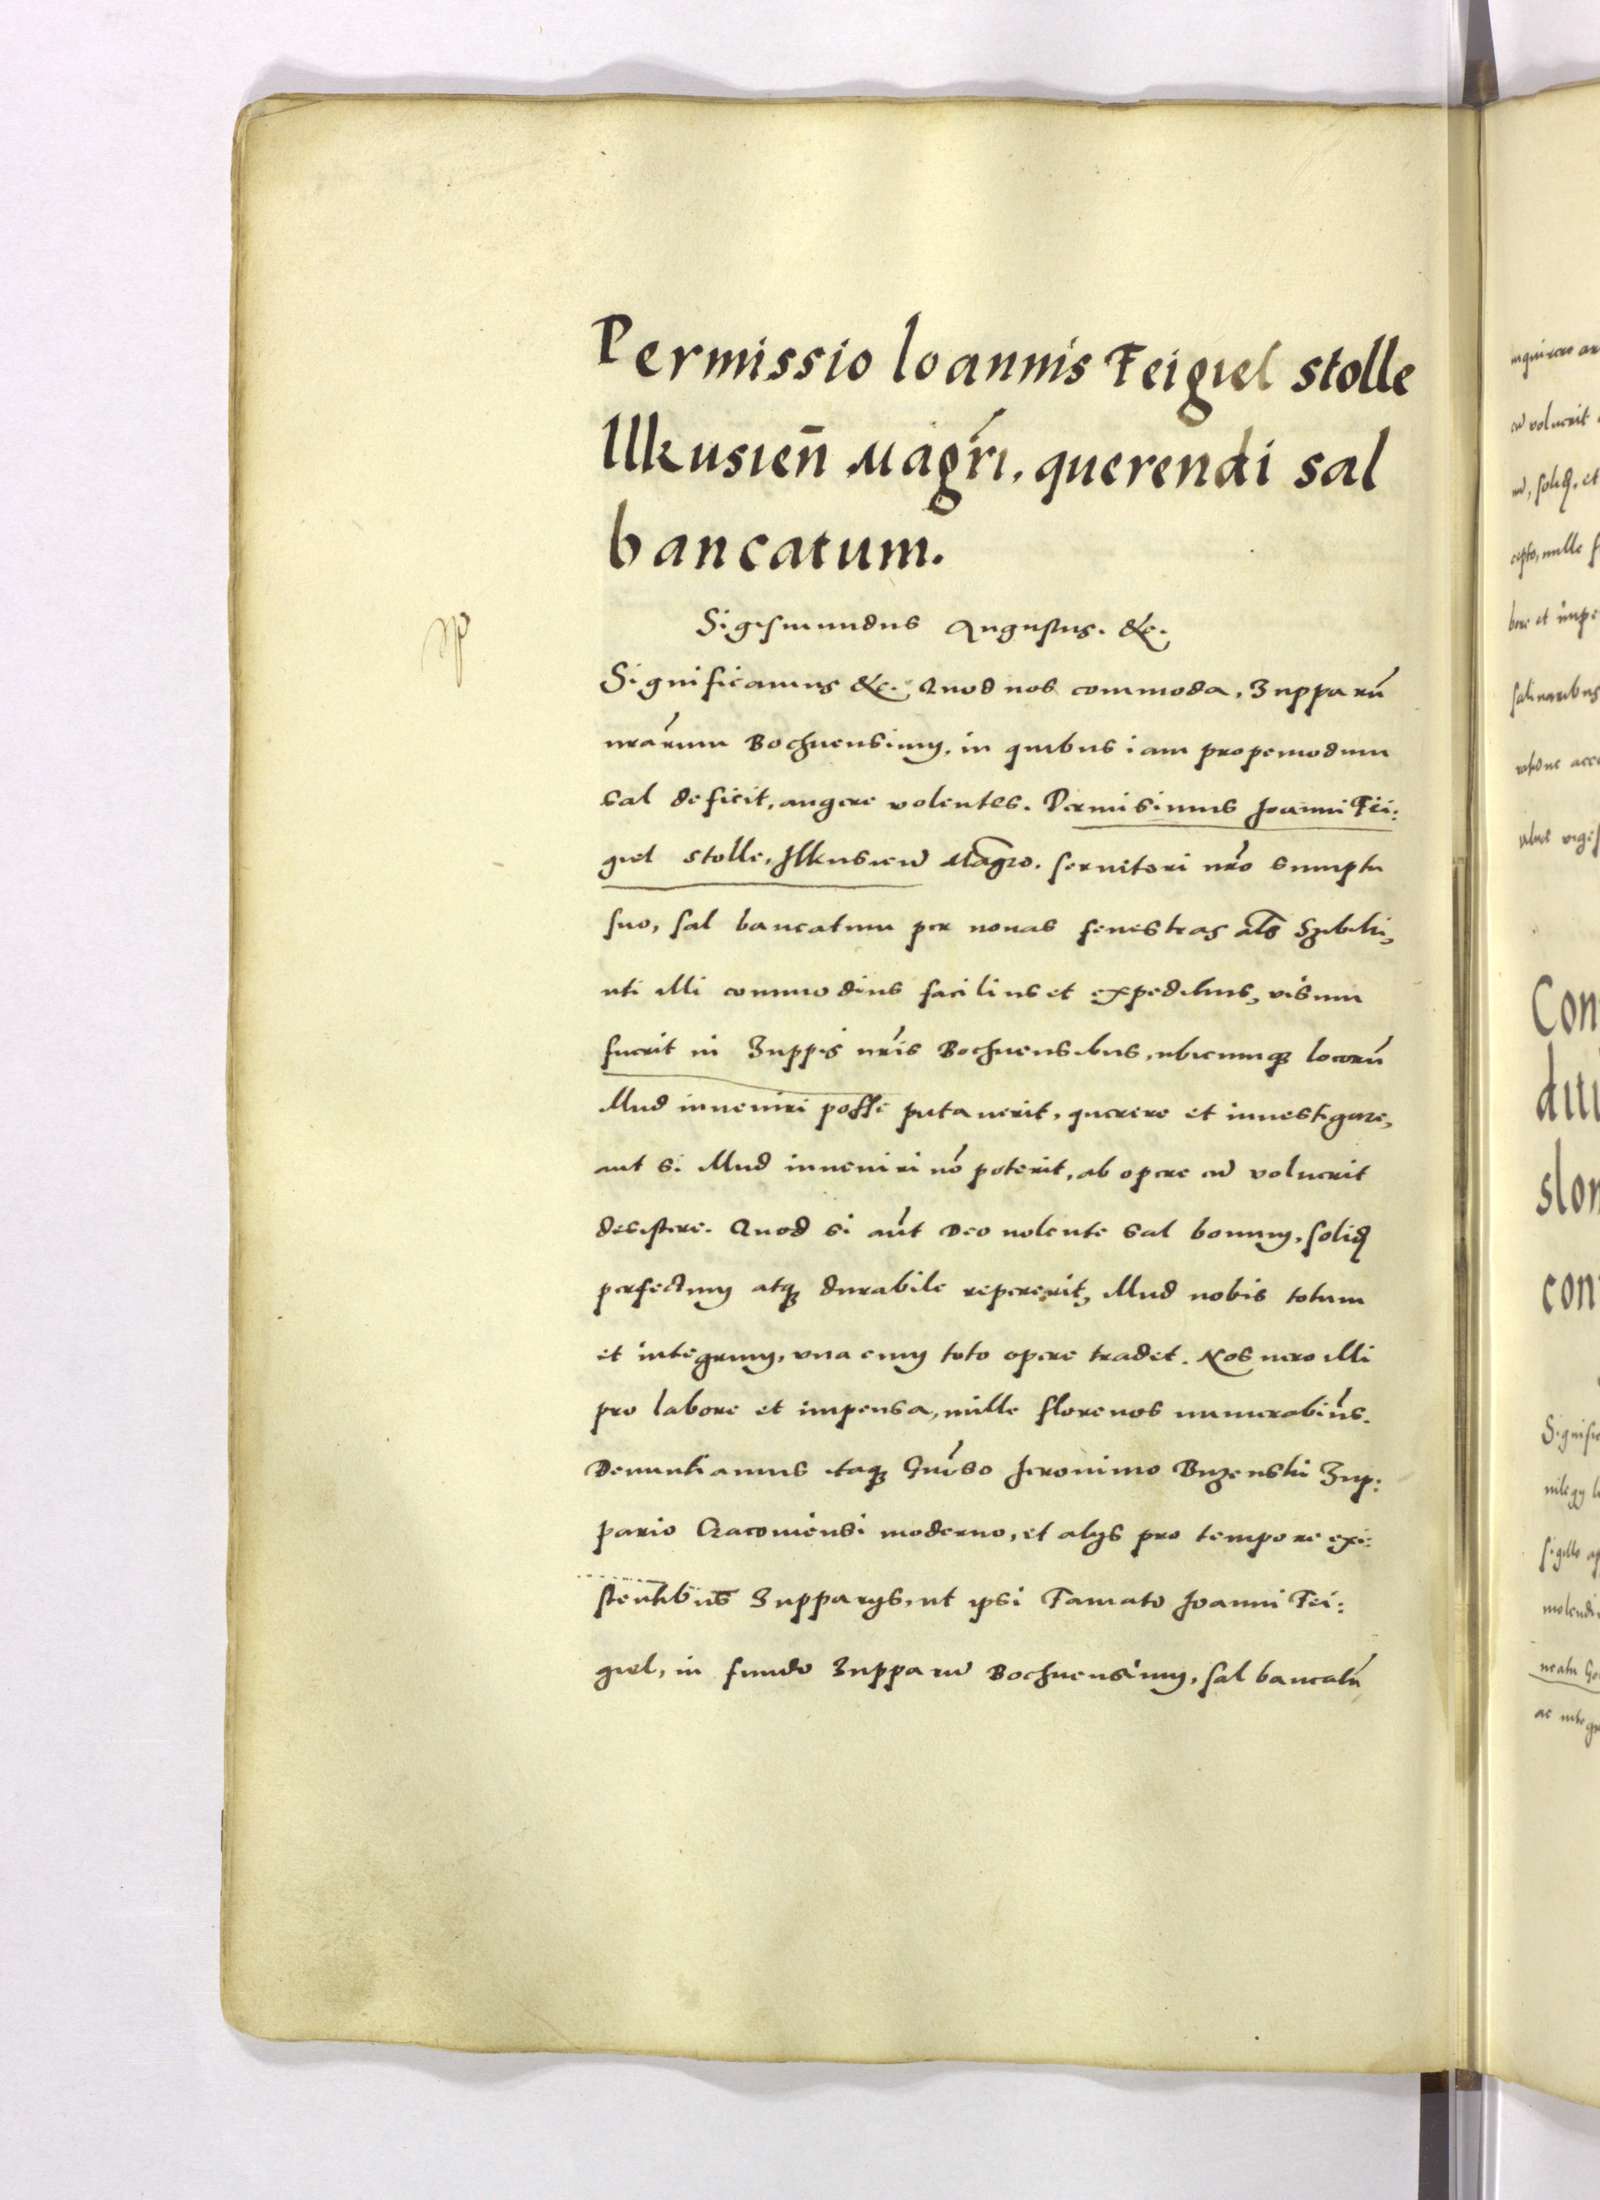 Permissio Ioannis Feigiel stolle
Ilkusien̄ Magr̄i, querendi sal
bancatum.
Sigismundus Augustus. &c.
Significamus &c. Quod nos commoda, Zupparū
nrārum Bochnensium, in quibus iam propemodum
sal deficit, augere volentes. Permisimus Joanni Fei:
giel stolle, Ilkusień Magro. seruitori nrō sumptu
suo, sal bancatum per nouas fenestras al̄s Szibiki,
uti illi commodius facilius et expeditius, visum
fuerit in Zuppis nrīs Bochnensibus, ubicumqȝ locorū
Illud inueniri posse putauerit, querere et inuestigare,
aut si Illud inueniri nō poterit, ab opere cū voluerit
desistere. Quod si aūt Deo uolente sal bonum, solidū
perfectum atqȝ durabile repererit, Illud nobis totum
et integrum, una cum toto opere tradet. Nos uero illi
pro labore et impensa, mille florenos numerabim̄s.
Denuntiamus itaqȝ Gn̄so Jeronimo Buzenski Zup:
pario Cracouiensi moderno, et alijs pro tempore exi:
stentibus Zupparijs, ut ipsi Famato Joanni Fei:
giel, in fundo Zupparū Bochnensium, sal bancatū
inquirere
cū voluerit
et
mille
bore et impe
salinaribus
Con
ditu
slon
con
Signific
sigillo
ac integr